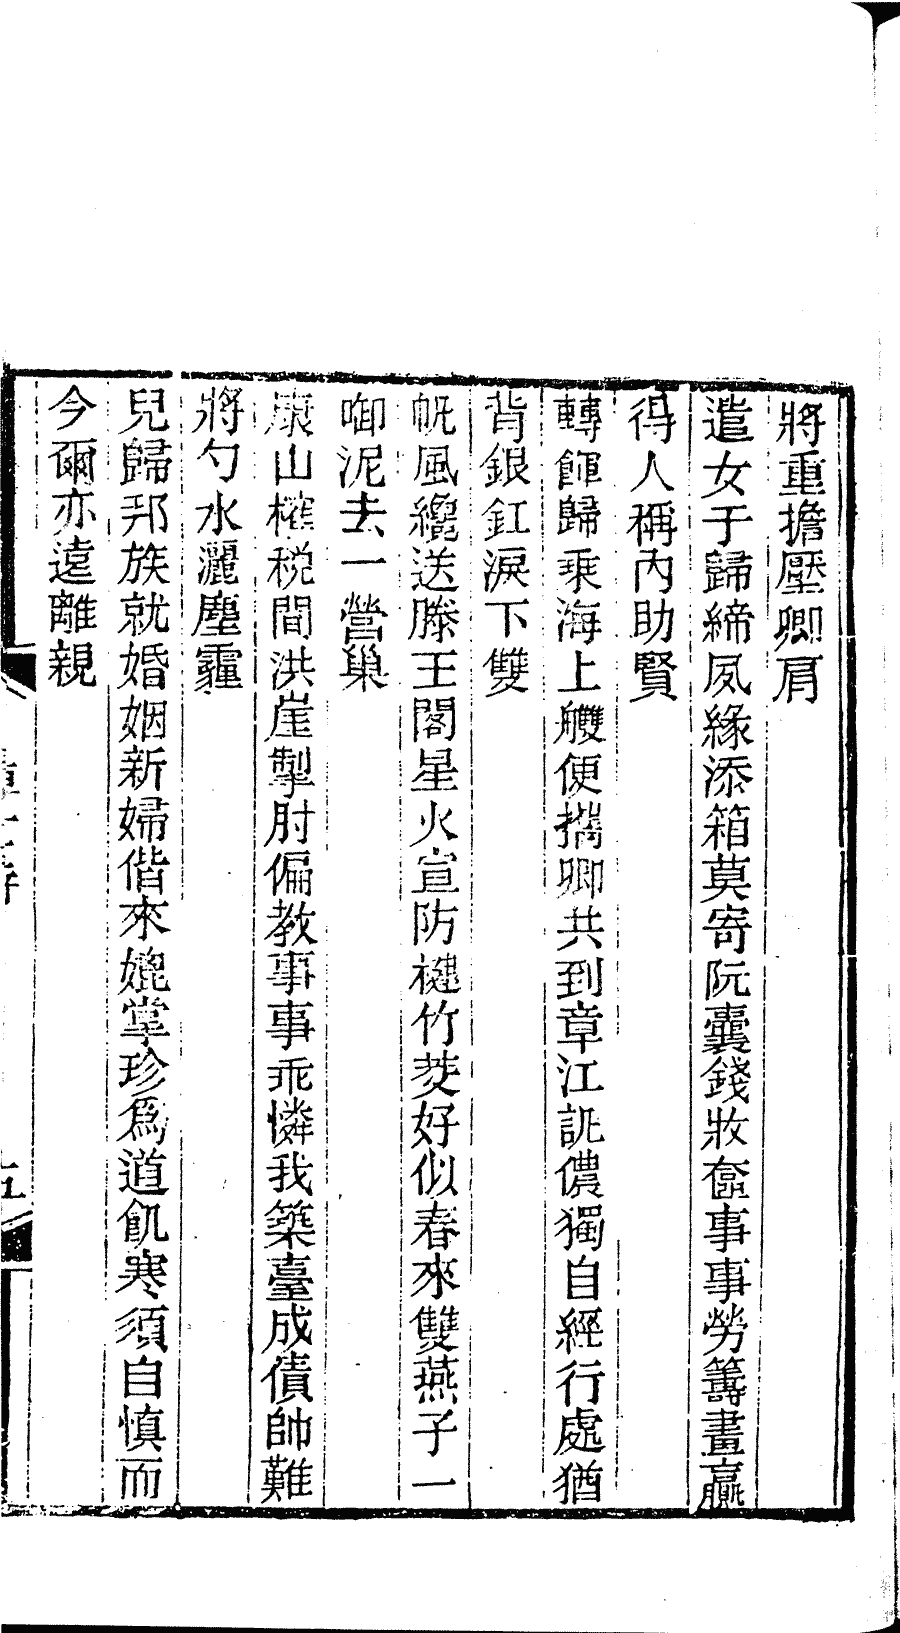 將重擔壓卿肩
遣女于歸締夙緣添箱莫寄阮囊錢妝奩事事勞籌畫贏
得人稱內助賢
轉餉歸乘海上艭便攜卿共到章江詎儂獨自經行處猶
背銀釭淚下雙
帆風纔送滕王閣星火宣防楗竹茭好似春來雙燕子一
啣泥去一營巢
山榷稅間洪崖掣肘偏教事事乖憐我築臺成債帥難
將勺水灑塵霾
兒歸邦族就婚姻新婦偕來媲掌珍爲道飢寒須自慎而
今爾亦遠離親
五